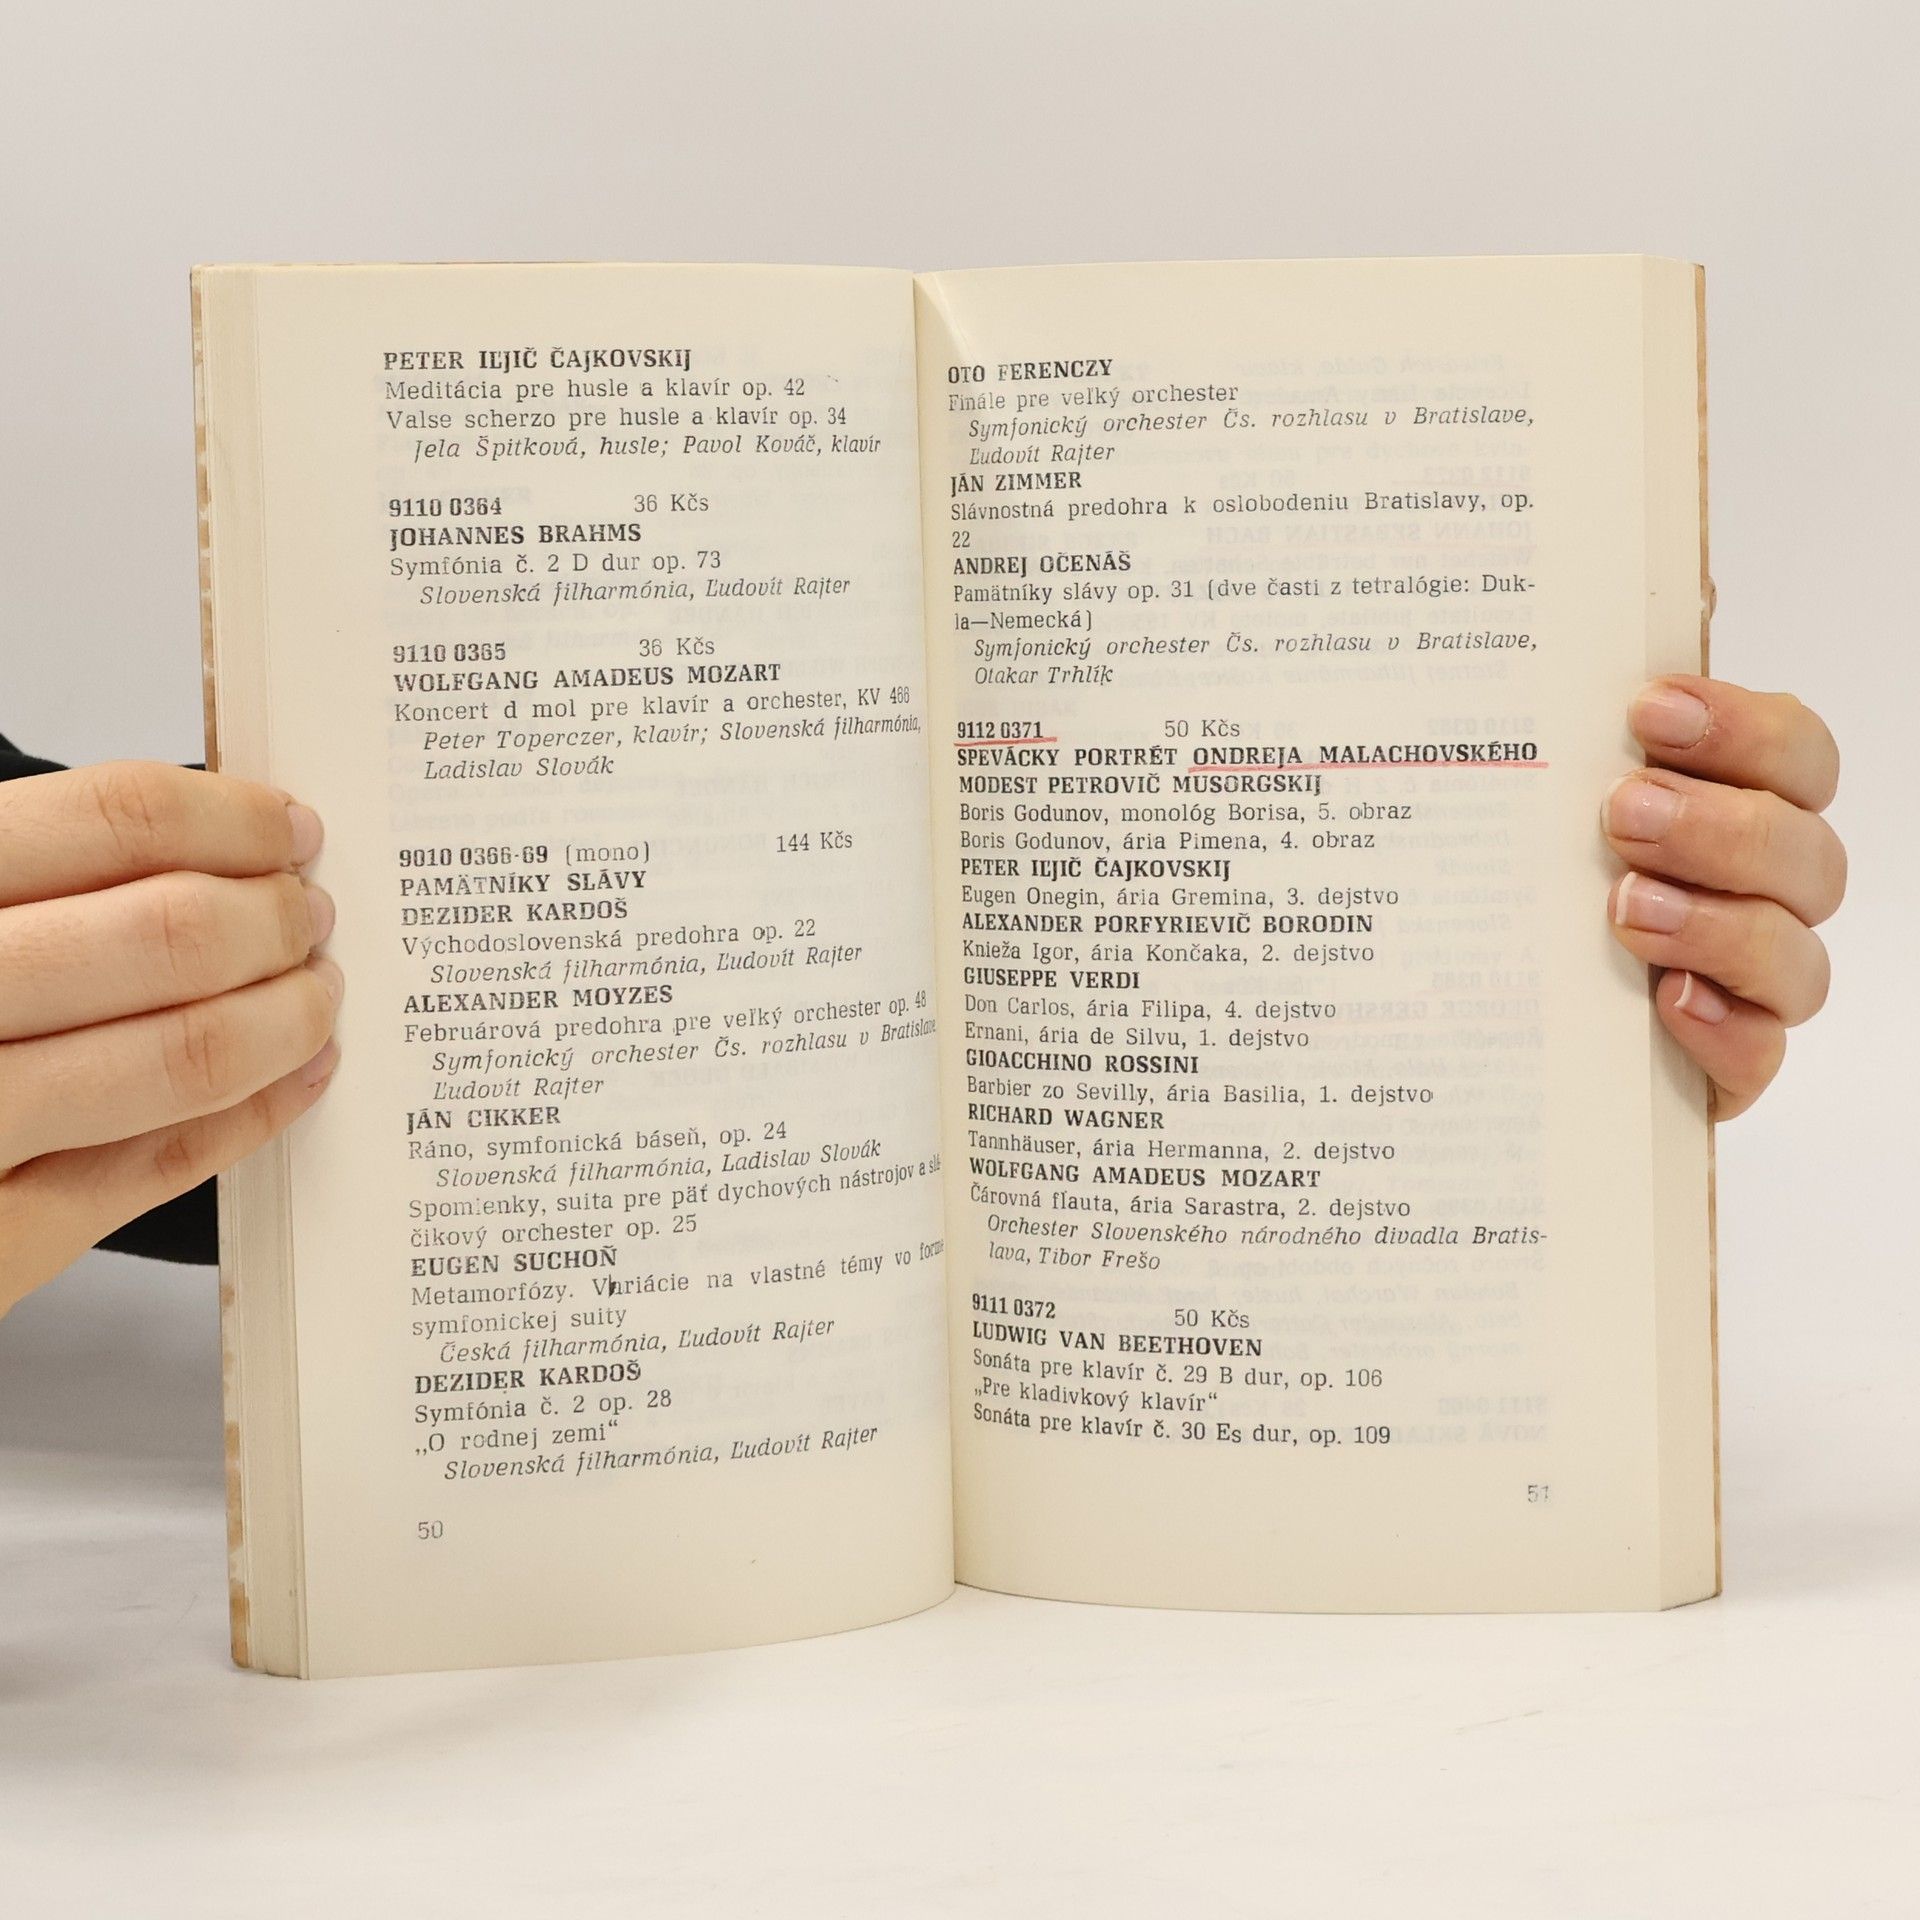 PETER IĽJIČ ČAJKOVSKIJ
Meditácia pre husle a klavír op. 42
Valse scherzo pre husle a klavír op. 34
Jela Špitková, husle; Pavol Kováč, klavír
9110 0364 36 Kčs
JOHANNES BRAHMS
Symfónia č. 2 D dur op. 73
Slovenská filharmónia, Ľudovít Rajter
9110 0365 36 Kčs
WOLFGANG AMADEUS MOZART
Koncert d mol pre klavír a orchester, KV 466
Peter Toperczer, klavír; Slovenská filharmónia,
Ladislav Slovák
9010 0366-69 (mono) 144 Kčs
PAMÄTNÍKY SLÁVY
DEZIDER KARDOŠ
Východoslovenská predohra op. 22
Slovenská filharmónia, Ľudovít Rajter
ALEXANDER MOYZES
Februárová predohra pre veľký orchester op. 48
Symfonický orchester Čs. rozhlasu v Bratislave
Ľudovít Rajter
JÁN CIKKER
Ráno, symfonická báseň, op. 24
Slovenská filharmónia, Ladislav Slovák
Spomienky, suita pre päť dychových nástrojov a slá-
čikový orchester op. 25
EUGEN SUCHOŇ
Metamorfózy. Variácie na vlastné témy vo forme
symfonickej suity
Česká filharmónia, Ľudovít Rajter
DEZIDER KARDOŠ
Symfónia č. 2 op. 28
„O rodnej zemi“
Slovenská filharmónia, Ľudovít Rajter
50
OTO FERENCZY
Finále pre veľký orchester
Symfonický orchester Čs. rozhlasu v Bratislave,
Ľudovít Rajter
JÁN ZIMMER
Slávnostná predohra k oslobodeniu Bratislavy, op.
22
ANDREJ OČENÁŠ
Pamätníky slávy op. 31 (dve časti z tetralógie: Duk-
la—Nemecká)
Symfonický orchester Čs. rozhlasu v Bratislave,
Otakar Trhlík
9112 0371 50 Kčs
SPEVÁCKY PORTRÉT ONDREJA MALACHOVSKÉHO
MODEST PETROVIČ MUSORGSKIJ
Boris Godunov, monológ Borisa, 5. obraz
Boris Godunov, ária Pimena, 4. obraz
PETER IĽJIČ ČAJKOVSKIJ
Eugen Onegin, ária Gremina, 3. dejstvo
ALEXANDER PORFYRIEVIČ BORODIN
Knieža Igor, ária Končaka, 2. dejstvo
GIUSEPPE VERDI
Don Carlos, ária Filipa, 4. dejstvo
Ernani, ária de Silvu, 1. dejstvo
GIOACCHINO ROSSINI
Barbier zo Sevilly, ária Basilia, 1. dejstvo
RICHARD WAGNER
Tannhäuser, ária Hermanna, 2. dejstvo
WOLFGANG AMADEUS MOZART
Čárovná flauta, ária Sarastra, 2. dejstvo
Orchester Slovenského národného divadla Bratis-
lava, Tibor Frešo
9111 0372 50 Kčs
LUDWIG VAN BEETHOVEN
Sonáta pre klavír č. 29 B dur, op. 106
„Pre kladivkový klavír“
Sonáta pre klavír č. 30 Es dur, op. 109
51